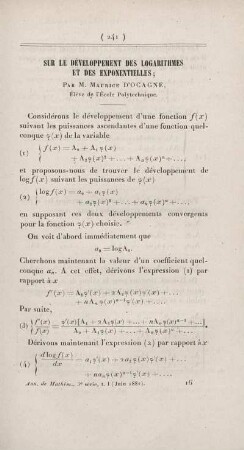 ( 241 )
SUR LE DÉVELOPPEMENT DES LOGARITHMES
ET DES EXPONENTIELLES;
PAR M. MAURICE D'OCAGNE,
Élève de l'École Polytechnique.
Considérons le développement d'une fonction f(x)
suivant les puissances ascendantes d'une fonction quel-
conque φ(x) de la variable
(1) { f(x) = A₀ + A₁φ(x)
+ A₂φ(x)² + ... + Aₙφ(x)ⁿ + ...,
et proposons-nous de trouver le développement de
log f(x) suivant les puissances de φ(x)
(2) { log f(x) = a₀ + a₁φ(x)
+ a₂φ(x)² + ... + aₙφ(x)ⁿ + ...,
en supposant ces deux développements convergents
pour la fonction φ(x) choisie.
On voit d'abord immédiatement que
a₀ = log A₀.
Cherchons maintenant la valeur d'un coefficient quel-
conque aₙ. A cet effet, dérivons l'expression (1) par
rapport à x
f'(x) = A₁φ'(x) + 2A₂φ(x)φ'(x) + ...
+ nAₙφ(x)ⁿ⁻¹φ'(x) + ....
Par suite,
(3) { f'(x)/f(x) = φ'(x)[A₁ + 2A₂φ(x) + ... + nAₙφ(x)ⁿ⁻¹ + ...] / A₀ + A₁φ(x) + ... + Aₙφ(x)ⁿ + ... .
Dérivons maintenant l'expression (2) par rapport à x
(4) { d log f(x)/dx = a₁φ'(x) + 2a₂φ(x)φ'(x) + ...
+ naₙφ(x)ⁿ⁻¹φ'(x) + ...
Ann. de Mathém., 3ᵉ série, t. I (Juin 1882). 16